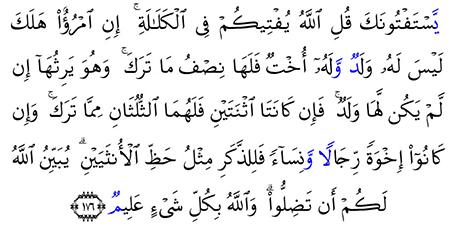 يَّسۡتَفۡتُونَكَ قُلِ ٱللَّهُ يُفۡتِيكُمۡ فِي ٱلۡكَلَٰلَةِۚ إِنِ ٱمۡرُؤٌاْ هَلَكَ
لَيۡسَ لَهُۥ وَلَدٌ وَّلَهُۥٓ أُخۡتٌ فَلَهَا نِصۡفُ مَا تَرَكَۚ وَهُوَ يَرِثُهَآ إِن
لَّمۡ يَكُن لَّهَا وَلَدٌۚ فَإِن كَانَتَا ٱثۡنَتَيۡنِ فَلَهُمَا ٱلثُّلُثَانِ مِمَّا تَرَكَۚ وَإِن
كَانُوٓاْ إِخۡوَةً رِّجَالًا وَّنِسَآءً فَلِلذَّكَرِ مِثۡلُ حَظِّ ٱلۡأُنثَيَيۡنِۗ يُبَيِّنُ ٱللَّهُ
لَكُمۡ أَن تَضِلُّواْۗ وَٱللَّهُ بِكُلِّ شَيۡءٍ عَلِيمُۢ ﴿١٧٦﴾